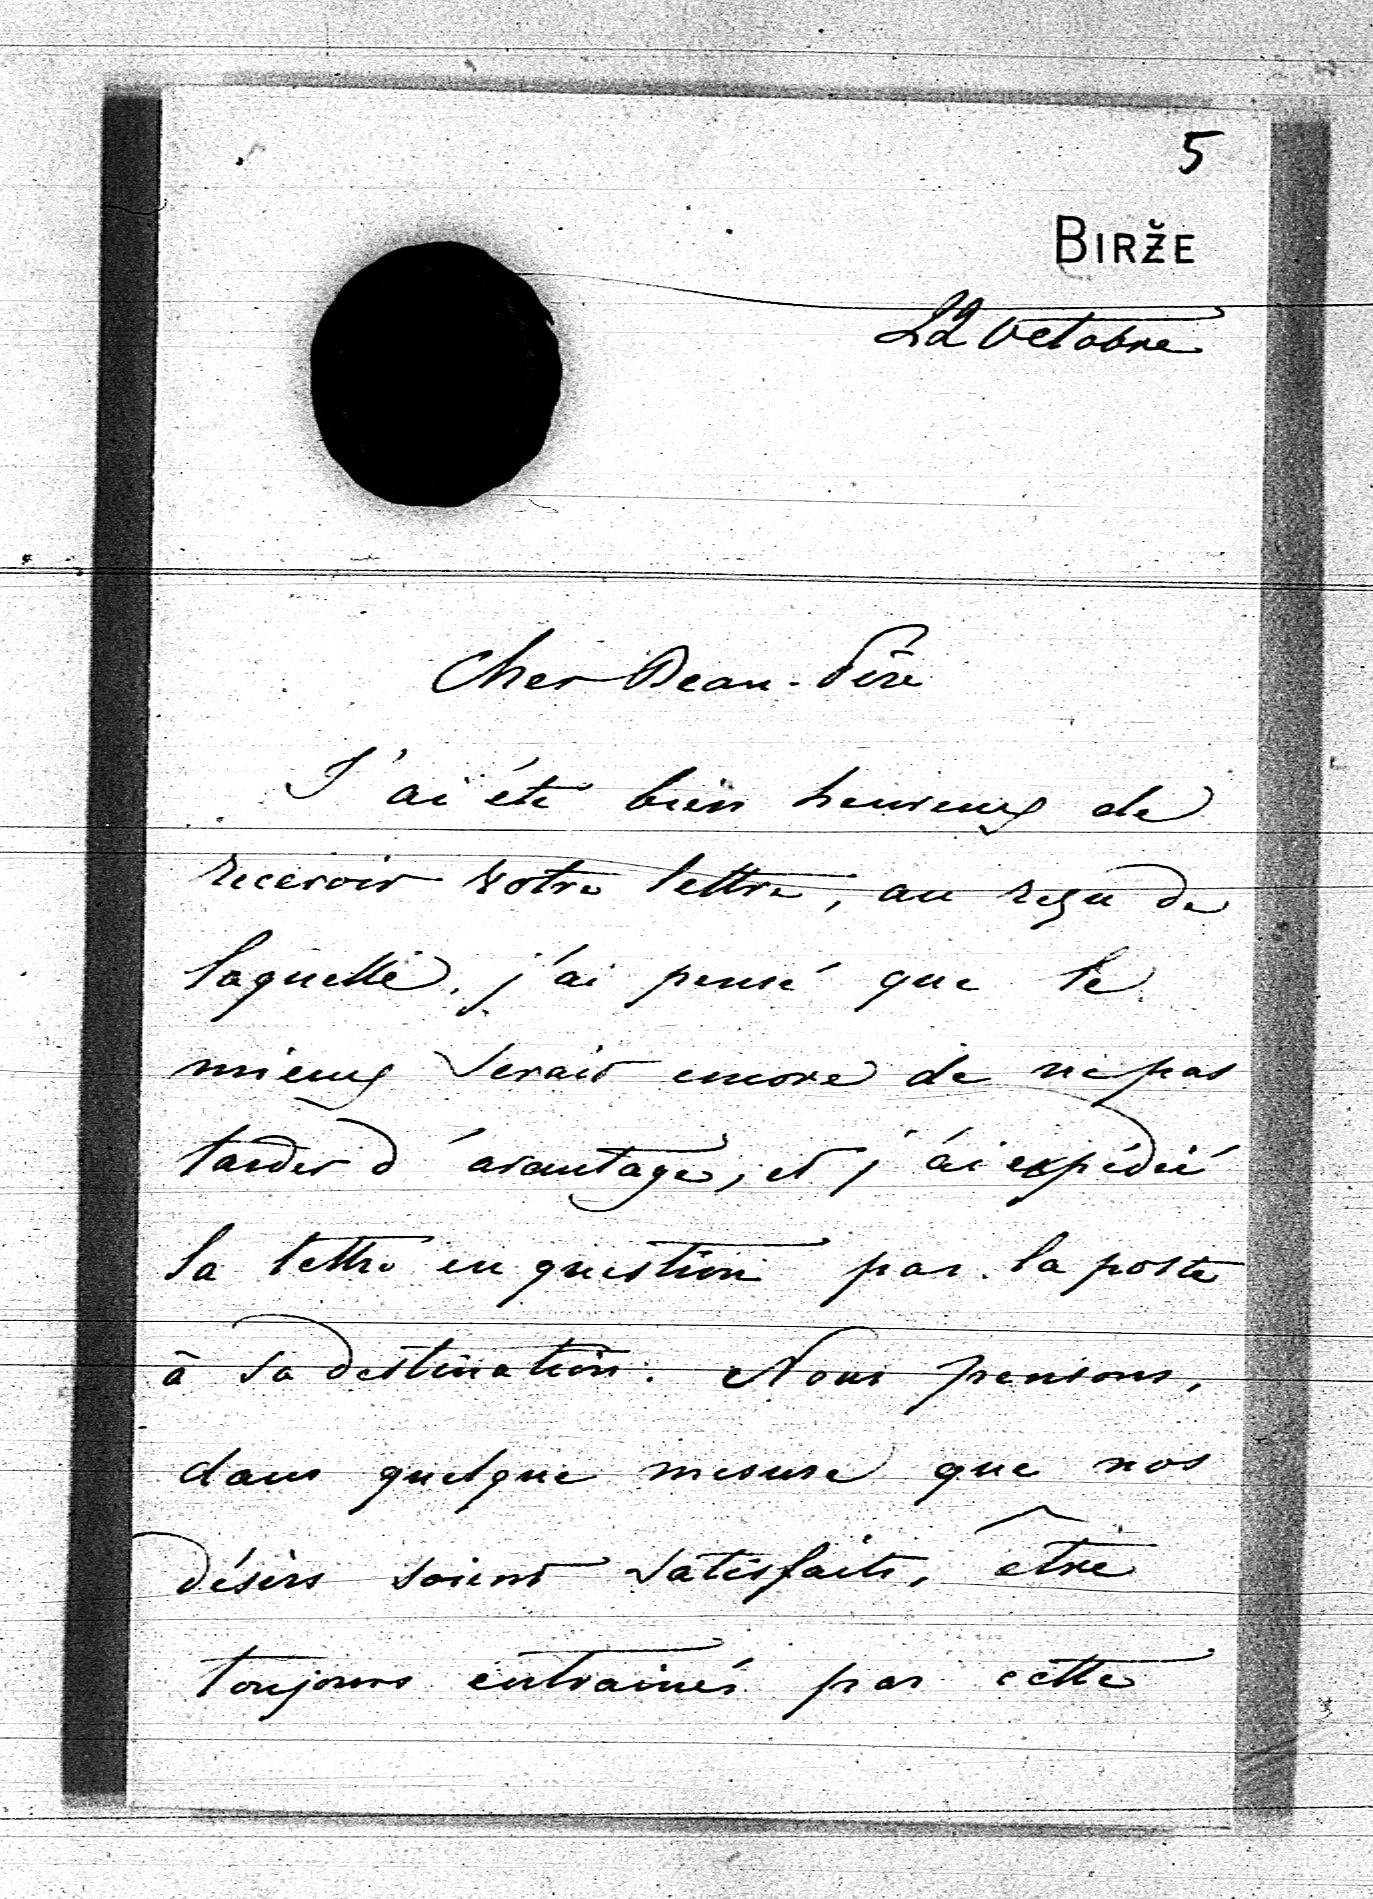 5
BIRŽE
22 Octobre
Cher Beau-Père
J'ai été bien heureux de
recevoir votre lettre, au reçu de
laquelle, j'ai pensé que le
mieux serait encore de ne pas
tarder d'avantage, et j'ai expédié
la lettre en question par la poste
à sa destination. Nous pensons,
dans quelque mesure que nos
désirs soient satisfaits, être
toujours entrainés par cette